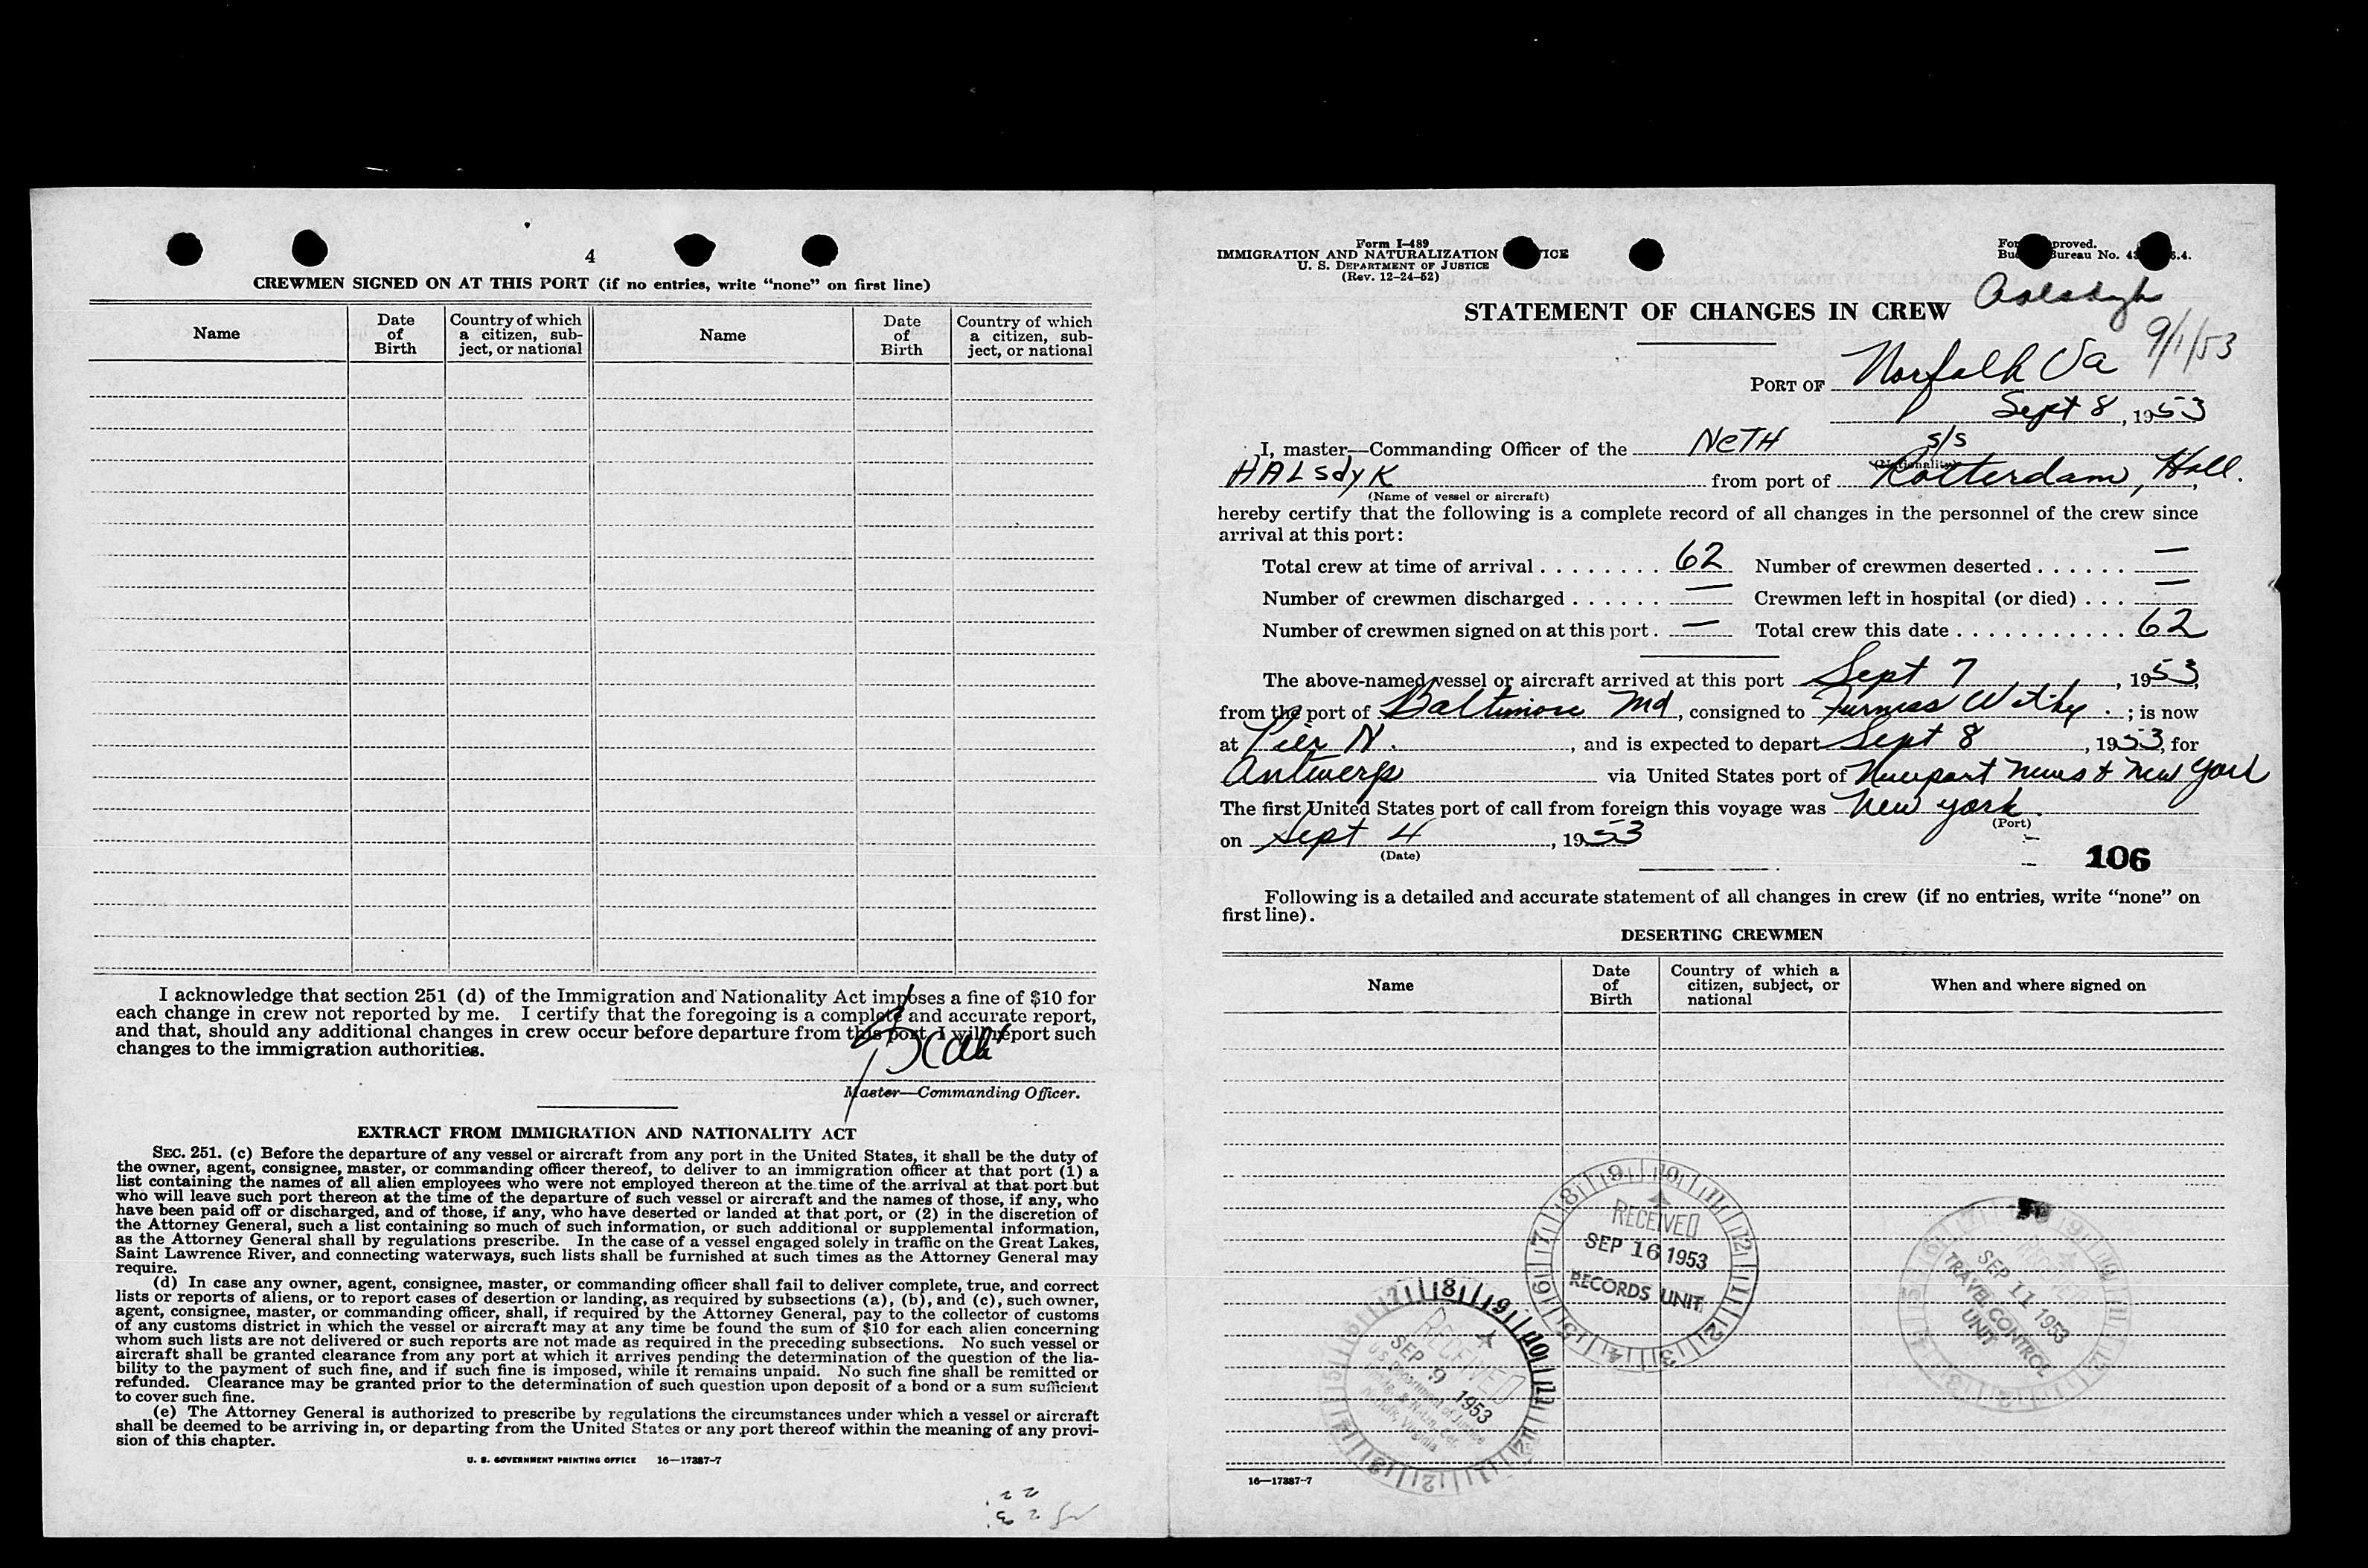 4
CREWMEN SIGNED ON AT THIS PORT (if no entries, write “none” on first line)
Name
Date of Birth
Country of which a citizen, sub-ject, or national
Name
Date of Birth
Country of which a citizen, sub-ject, or national
I acknowledge that section 251 (d) of the Immigration and Nationality Act imposes a fine of $10 for
each change in crew not reported by me. I certify that the foregoing is a complete and accurate report,
and that, should any additional changes in crew occur before departure from this port, I will report such
changes to the immigration authorities.
Master—Commanding Officer.
EXTRACT FROM IMMIGRATION AND NATIONALITY ACT
SEC. 251. (c) Before the departure of any vessel or aircraft from any port in the United States, it shall be the duty of
the owner, agent, consignee, master, or commanding officer thereof, to deliver to an immigration officer at that port (1) a
list containing the names of all alien employees who were not employed thereon at the time of the arrival at that port but
who will leave such port thereon at the time of the departure of such vessel or aircraft and the names of those, if any, who
have been paid off or discharged, and of those, if any, who have deserted or landed at that port, or (2) in the discretion of
the Attorney General, such a list containing so much of such information, or such additional or supplemental information,
as the Attorney General shall by regulations prescribe. In the case of a vessel engaged solely in traffic on the Great Lakes,
Saint Lawrence River, and connecting waterways, such lists shall be furnished at such times as the Attorney General may
require.
(d) In case any owner, agent, consignee, master, or commanding officer shall fail to deliver complete, true, and correct
lists or reports of aliens, or to report cases of desertion or landing, as required by subsections (a), (b), and (c), such owner,
agent, consignee, master, or commanding officer, shall, if required by the Attorney General, pay to the collector of customs
of any customs district in which the vessel or aircraft may at any time be found the sum of $10 for each alien concerning
whom such lists are not delivered or such reports are not made as required in the preceding subsections. No such vessel or
aircraft shall be granted clearance from any port at which it arrives pending the determination of the question of the lia-
bility to the payment of such fine, and if such fine is imposed, while it remains unpaid. No such fine shall be remitted or
refunded. Clearance may be granted prior to the determination of such question upon deposit of a bond or a sum sufficient
to cover such fine.
(e) The Attorney General is authorized to prescribe by regulations the circumstances under which a vessel or aircraft
shall be deemed to be arriving in, or departing from the United States or any port thereof within the meaning of any provi-
sion of this chapter.
U. S. GOVERNMENT PRINTING OFFICE 16—17387-7
Form I-489
IMMIGRATION AND NATURALIZATION
U. S. DEPARTMENT OF JUSTICE
(Rev. 12-24-52)
STATEMENT OF CHANGES IN CREW
9/1/53
PORT OF Norfolk Va
Sept 8, 1953
I, master—Commanding Officer of the NETH s/s
(Nationality)
HALSdYK from port of Rotterdam, Holl.
(Name of vessel or aircraft)
hereby certify that the following is a complete record of all changes in the personnel of the crew since
arrival at this port:
Total crew at time of arrival . . . . . . . . 62 Number of crewmen deserted . . . . . . —
Number of crewmen discharged . . . . . . — Crewmen left in hospital (or died) . . . —
Number of crewmen signed on at this port . — Total crew this date . . . . . . . . . . . 62
The above-named vessel or aircraft arrived at this port Sept 7, 1953,
from the port of Baltimore Md, consigned to Furness Withy . ; is now
at Pier N., and is expected to depart Sept 8, 1953, for
Antwerp via United States port of Newport News & New York
The first United States port of call from foreign this voyage was New York.
(Port)
on Sept 4, 1953
(Date)
106
Following is a detailed and accurate statement of all changes in crew (if no entries, write “none” on
first line).
DESERTING CREWMEN
Name
Date of Birth
Country of which a citizen, subject, or national
When and where signed on
RECEIVED
SEP 16 1953
RECORDS UNIT
RECEIVED
SEP 9 1953
U.S. Department of Justice
Norfolk, Virginia
RECEIVED
SEP 11 1953
TRAVEL CONTROL
UNIT
16—17387-7